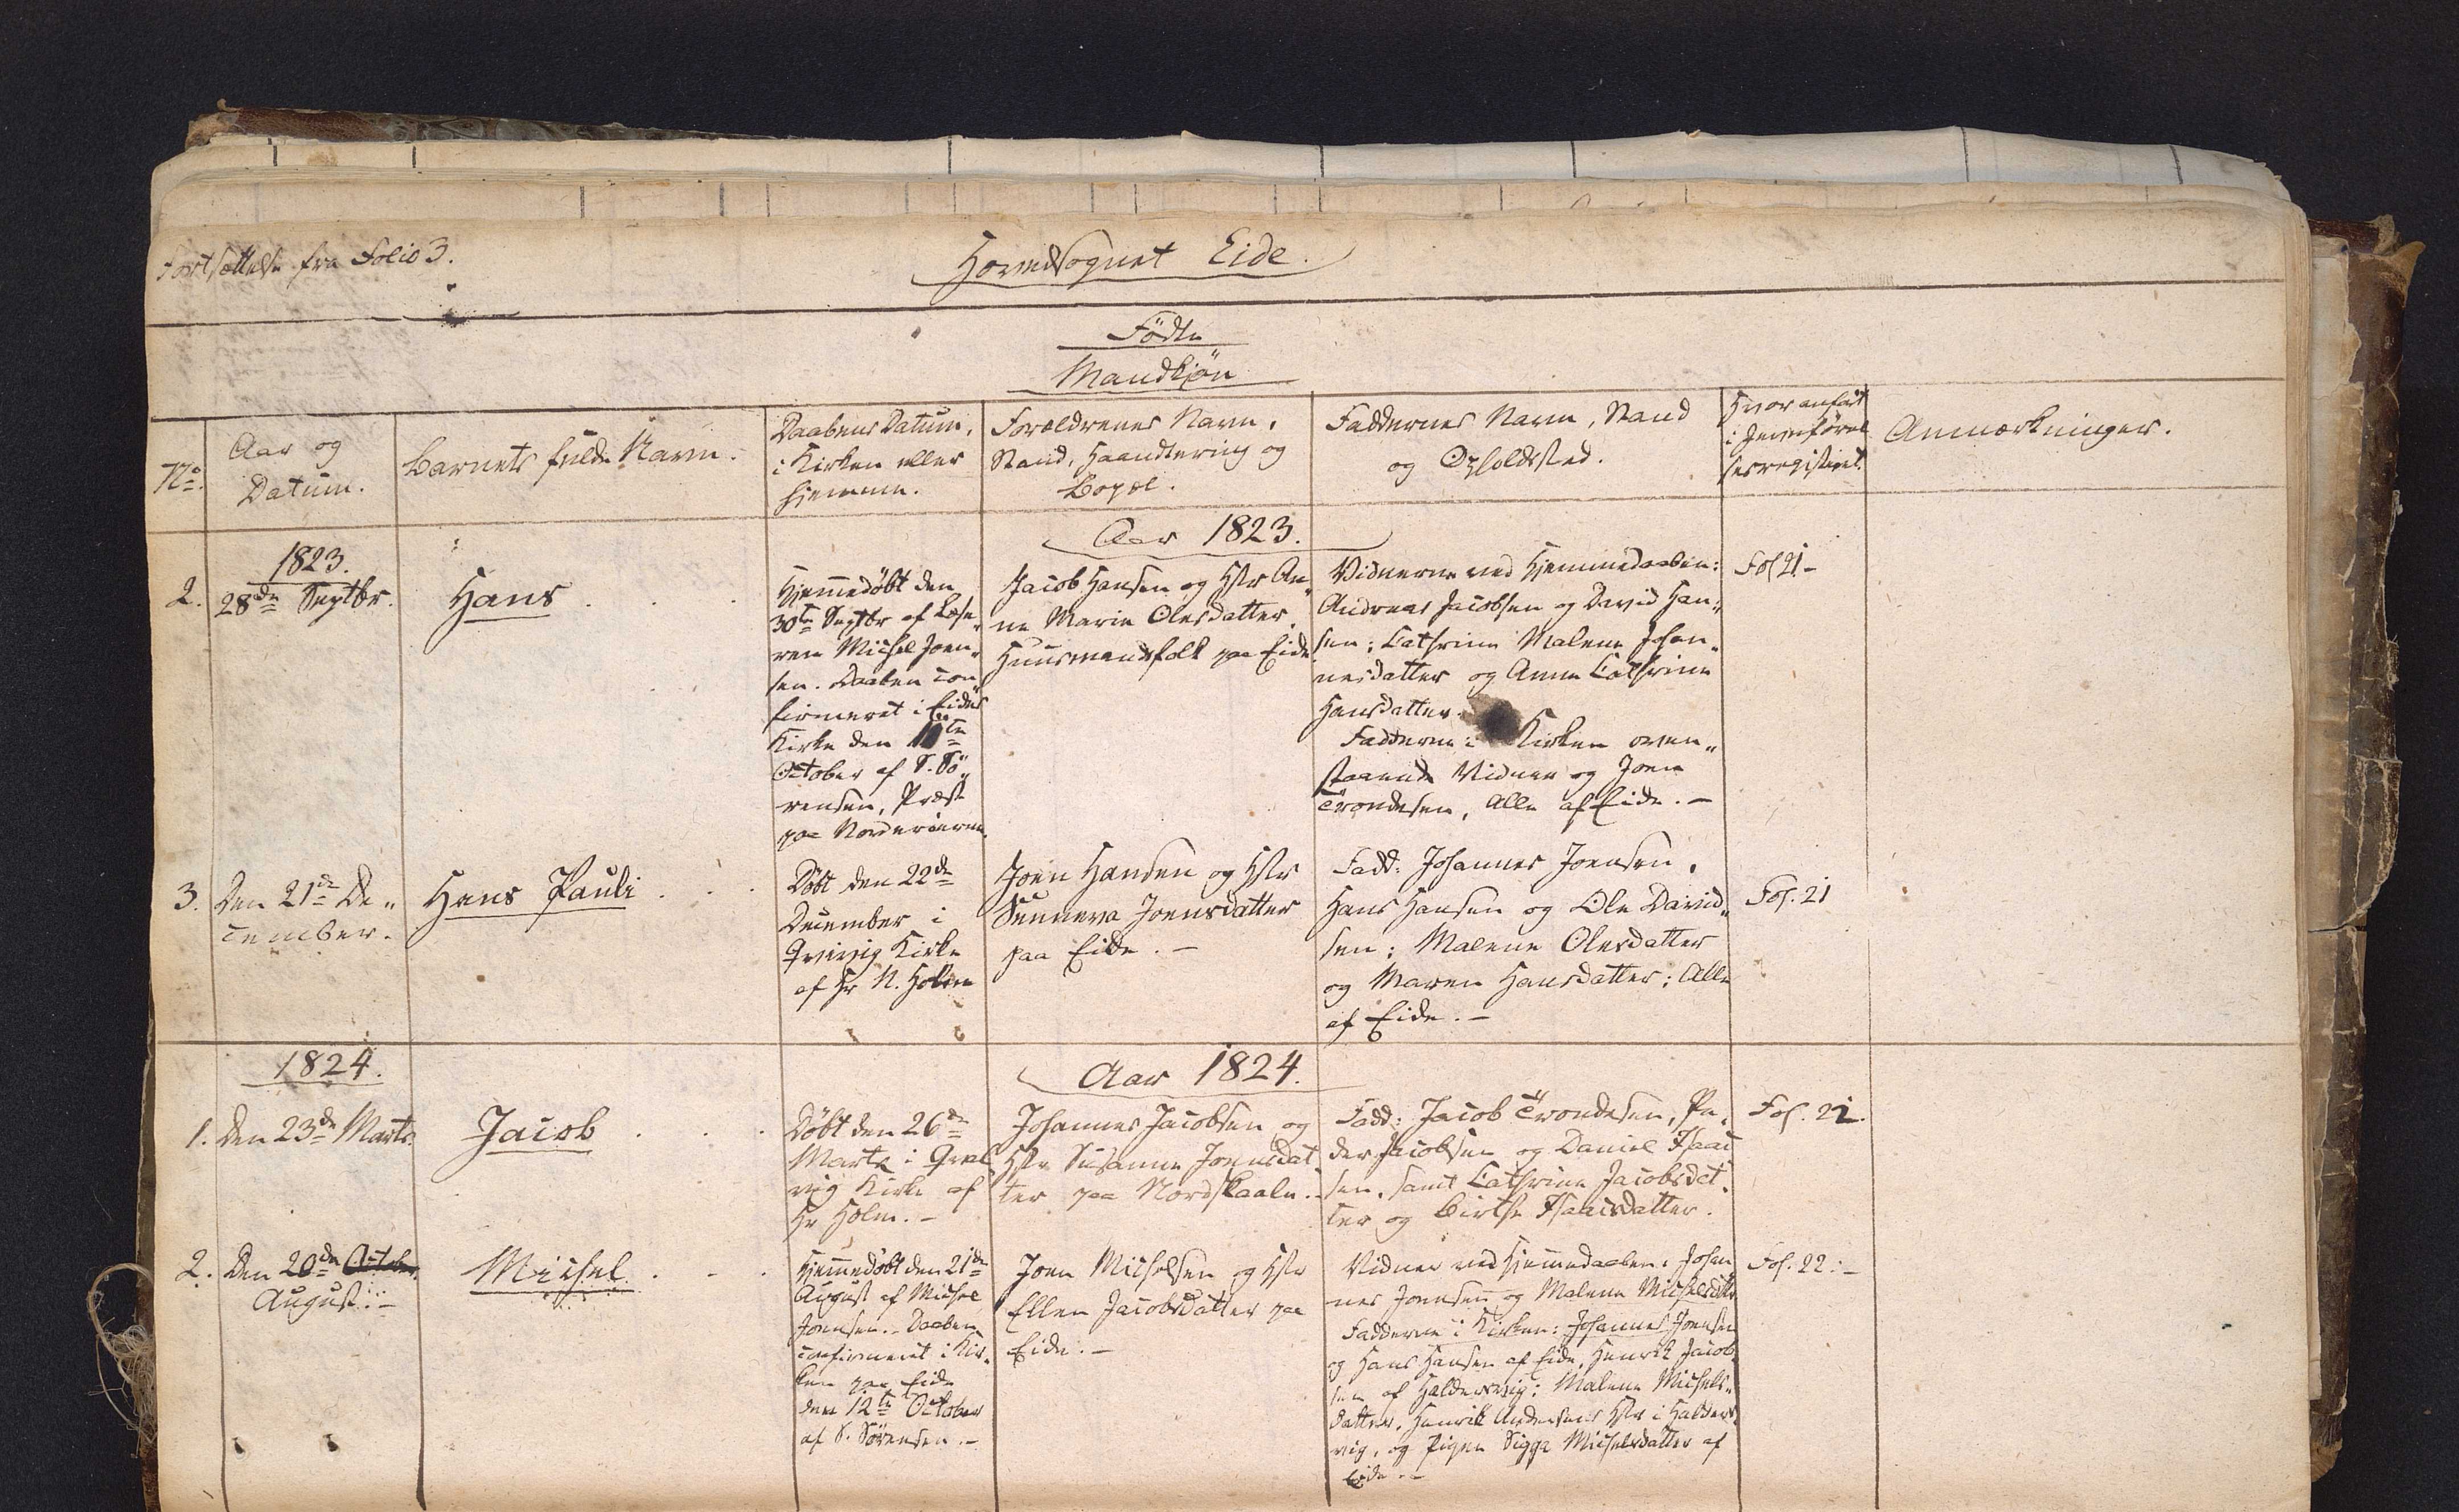 Fortsættelse fra Folio 3.
Hovedsognet Eide.
Födte
Mandkjön
No.
Aar og
Datum.
Barnets fulde Navn.
Daabens Datum,
i Kirken eller
hjemme.
Forældrenes Navn,
Stand, Haandtering og
Bopæl.
Faddernes Navn, Stand
og Opholdsted.
Hvor anført
i Jevnförel
sesregisteret.
Anmærkninger.
Aar 1823.
1823.
2.
28de Septbr.
Hans
Hjemmedöbt den
30te Septbr af Læse„
ren Michel Joen„
sen. Daaben con
firmeret i Eides
Kirke den
October af S. Sö„
rensen, Præst
paa Norderöerne.
Jacob Hansen og Hstr An„
ne Marie Olesdatter,
Huusmandsfolk paa Eide
Vidnerne ved Hjemmedaaben:
Andreas Jacobsen og David Han„
sen; Cathrine Malene Johan„
nesdatter og Anne Cathrine
Hansdatter.
Fadderne i Kirken oven„
staaende Vidner og Joen
Trondesen, Alle af Eide. –
Fol 21 –
3.
Den 21de De„
cember.
Hans Pauli
Döbt den 22de
December i
Qvivig Kirke
af Hr N. Holm
Joen Hansen og Hstr
Sunneva Joensdatter
paa Eide. –
Fadd: Johannes Joensen,
Hans Hansen og Ole David„
sen; Malene Olesdatter
og Maren Hansdatter; Alle
af Eide. –
Fol. 21
1824.
Aar 1824.
1.
Den 23de Marts.
Jacob
Döbt den 26de
Marts i Qval
vig Kirke af
Hr Holm. –
Johannes Jacobsen og
Hstr Susanne Joensdat
ter paa Nordskaale. –
Fadd: Jacob Trondesen, Pe„
der Jacobsen og Daniel Isaac
sen, samt Cathrine Jacobsdat„
ter og Birthe Isaacsdatter.
Fol. 22.
2.
Den 20de October
August. –
Michel
Hjemmedöbt den 21de
August af Michel
Joensen. – Daaben
confirmeret i Kir„
ken paa Eide
den 12te October
af S. Sörensen. –
Joen Michelsen og Hstr
Ellen Jacobsdatter paa
Eide. –
Vidner ved Hjemmedaaben: Johan„
nes Joensen og Malene Michelsdttr
Fadderne i Kirken: Johannes Joensen
og Hans Hansen af Eide, Henrik Jacob„
sen af Haldersvig; Malene Michels„
datter, Henrik Andersens Hstr i Halders„
vig, og Pigen Sigga Michelsdatter af
Eide. –
Fol. 22. –